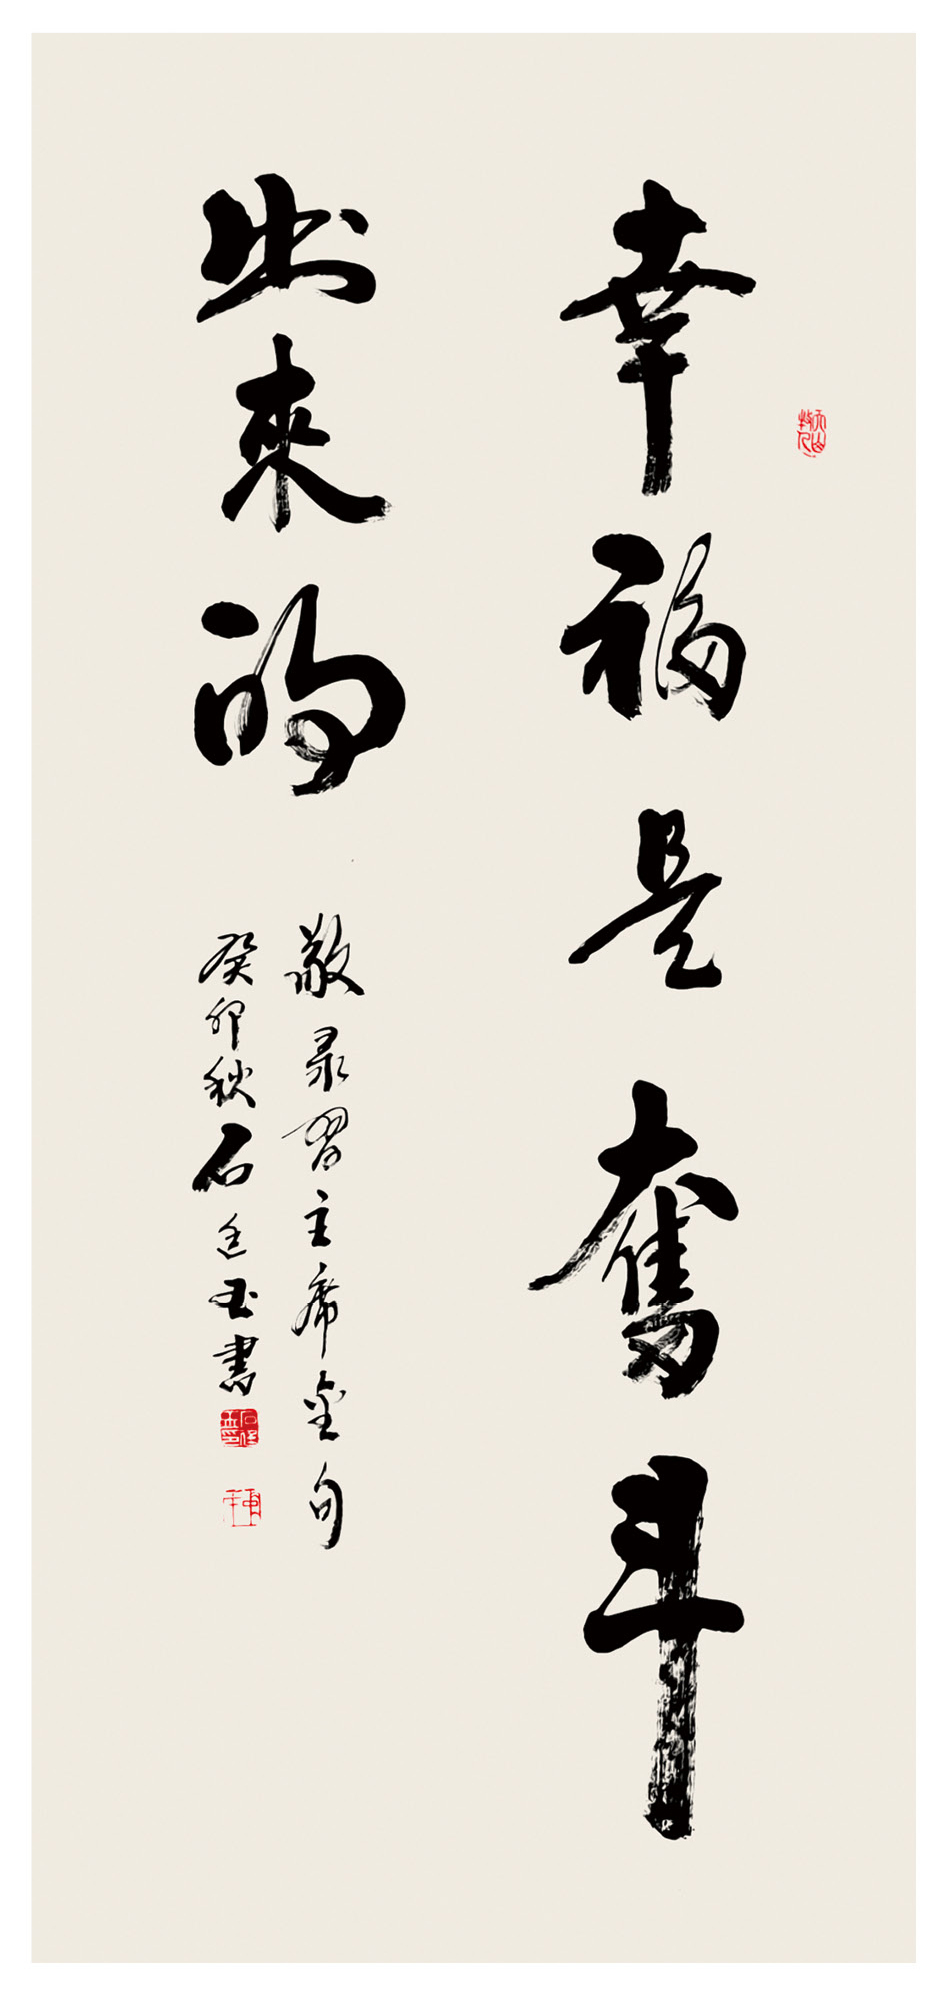 幸福是奮斗
出來的
敬录習主席金句
癸卯秋石廷玉書